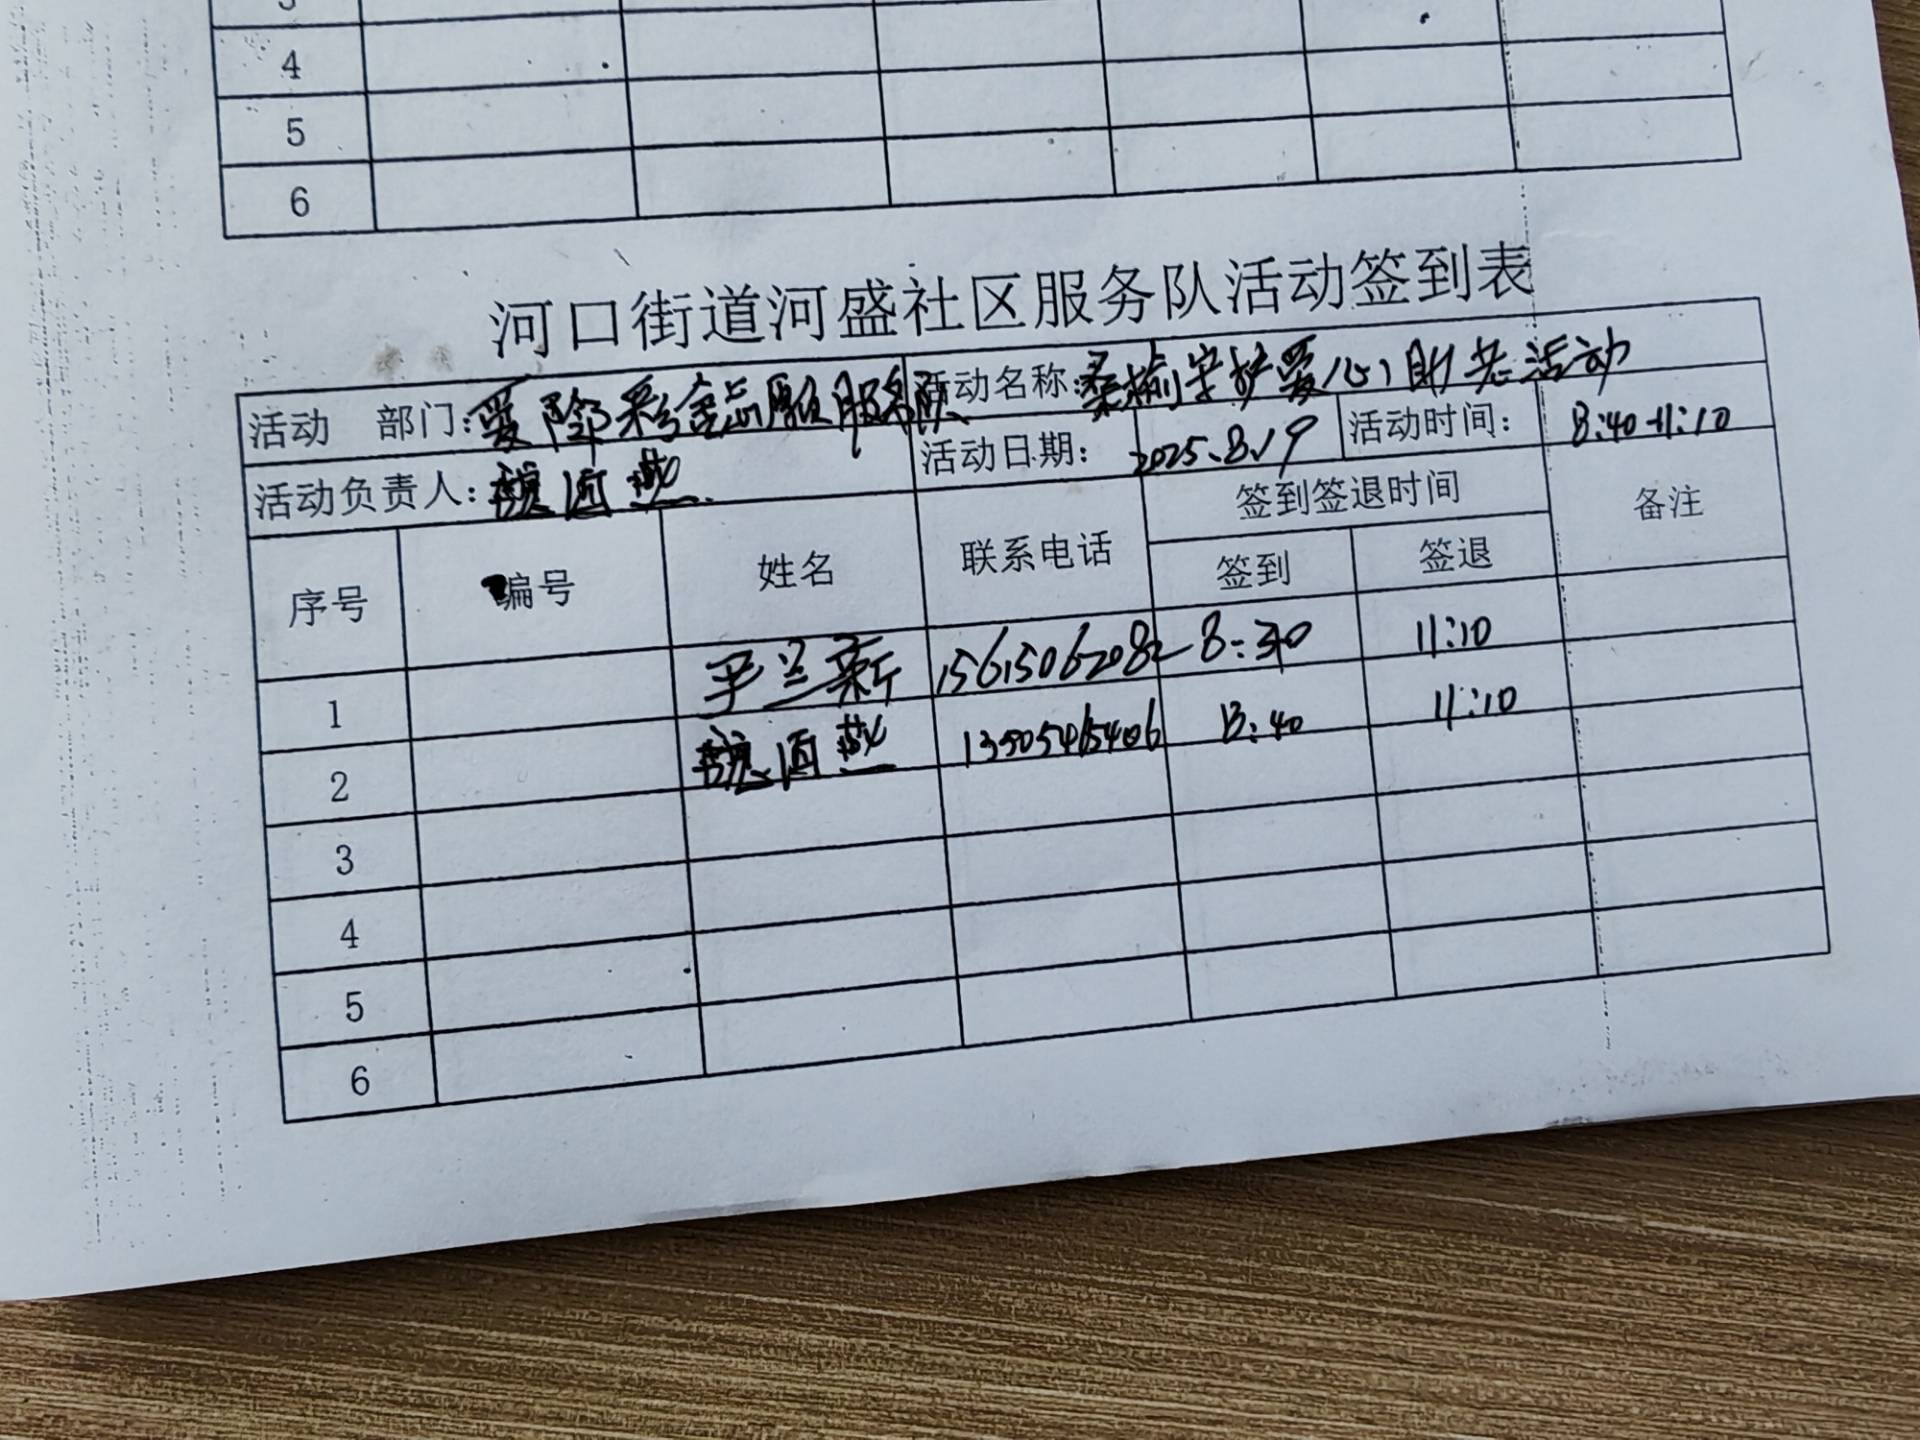 4
5
6
河口街道河盛社区服务队活动签到表
活动 部门：爱隆彩金志愿服务队 活动名称：桑榆守护爱心助老活动
活动负责人： 活动日期： 2025.8.19 活动时间： 8:40-11:10
序号 编号 姓名 联系电话 签到签退时间 备注
签到 签退
1 兰新 15615062082 8:40 11:10
2 8:40 11:10
3
4
5
6